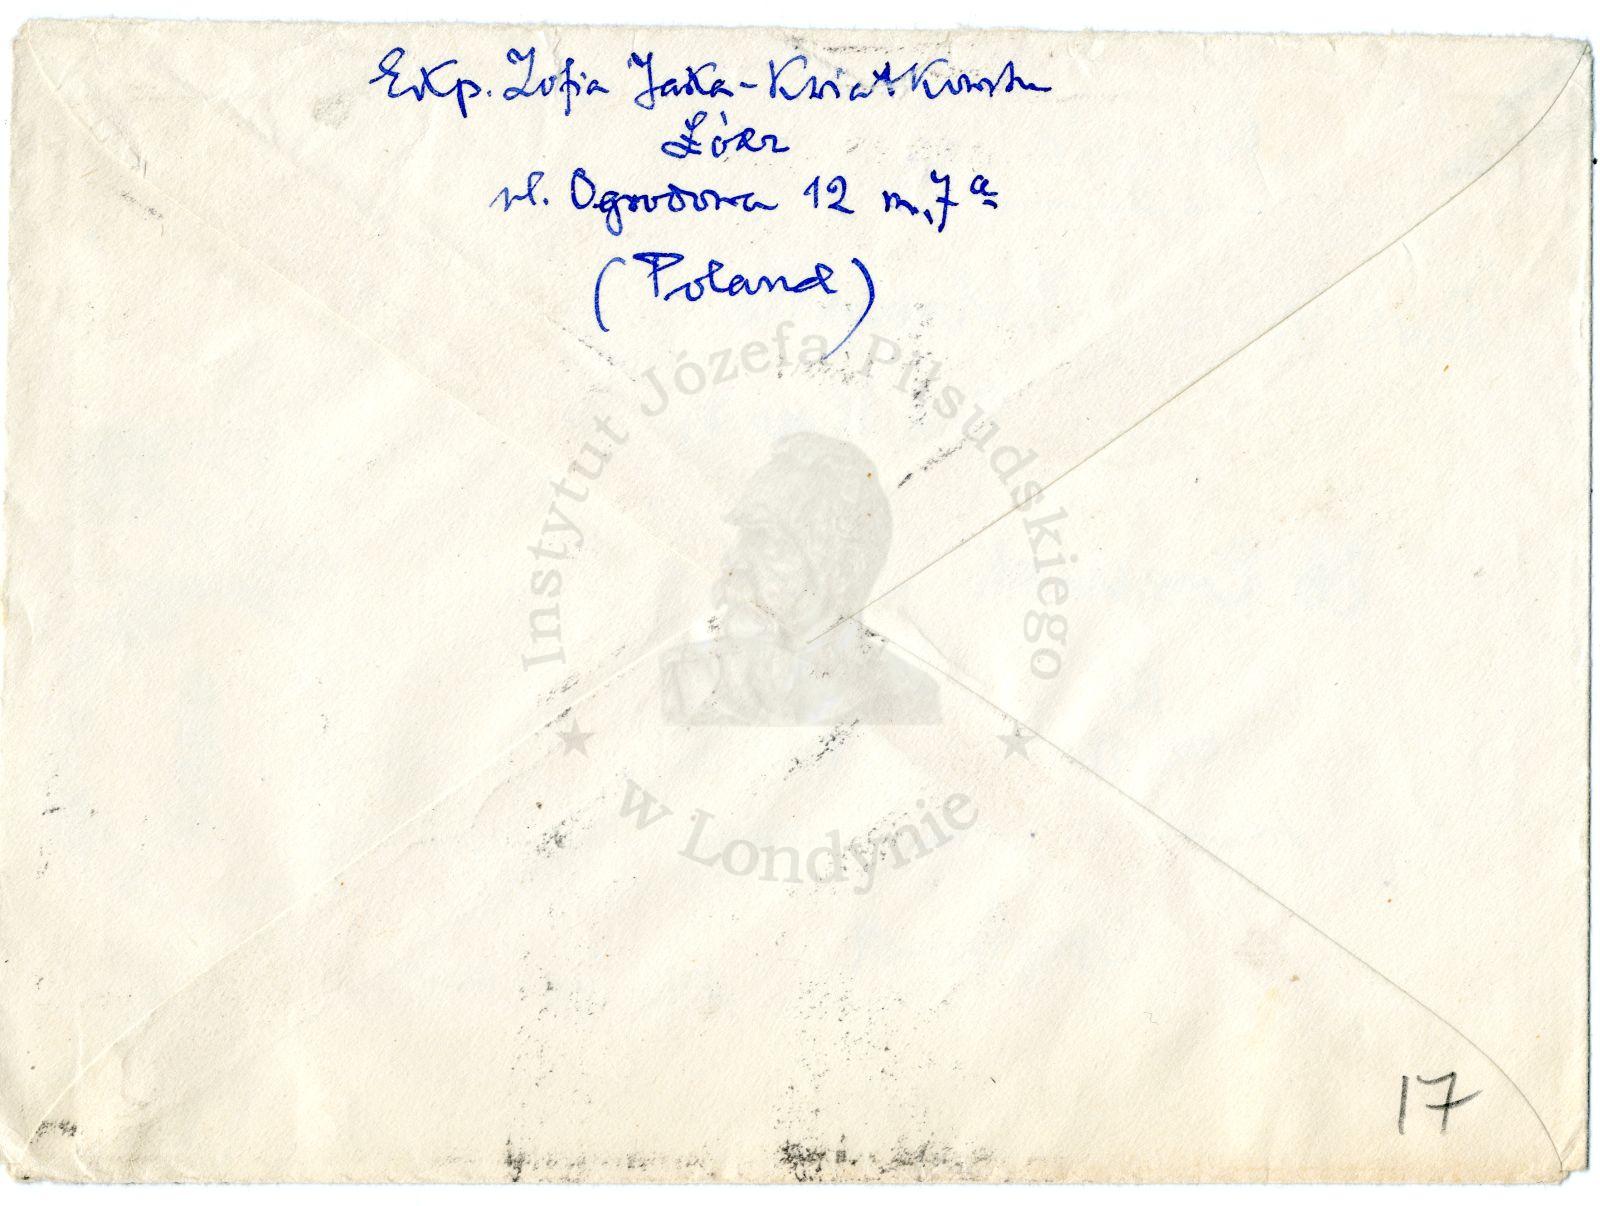 Exp. Zofia Jaxa-Kwiatkowska
Łódź
ul. Ogrodowa 12 m. 7a
(Poland)
Instytut Józefa Piłsudskiego
w Londynie
17